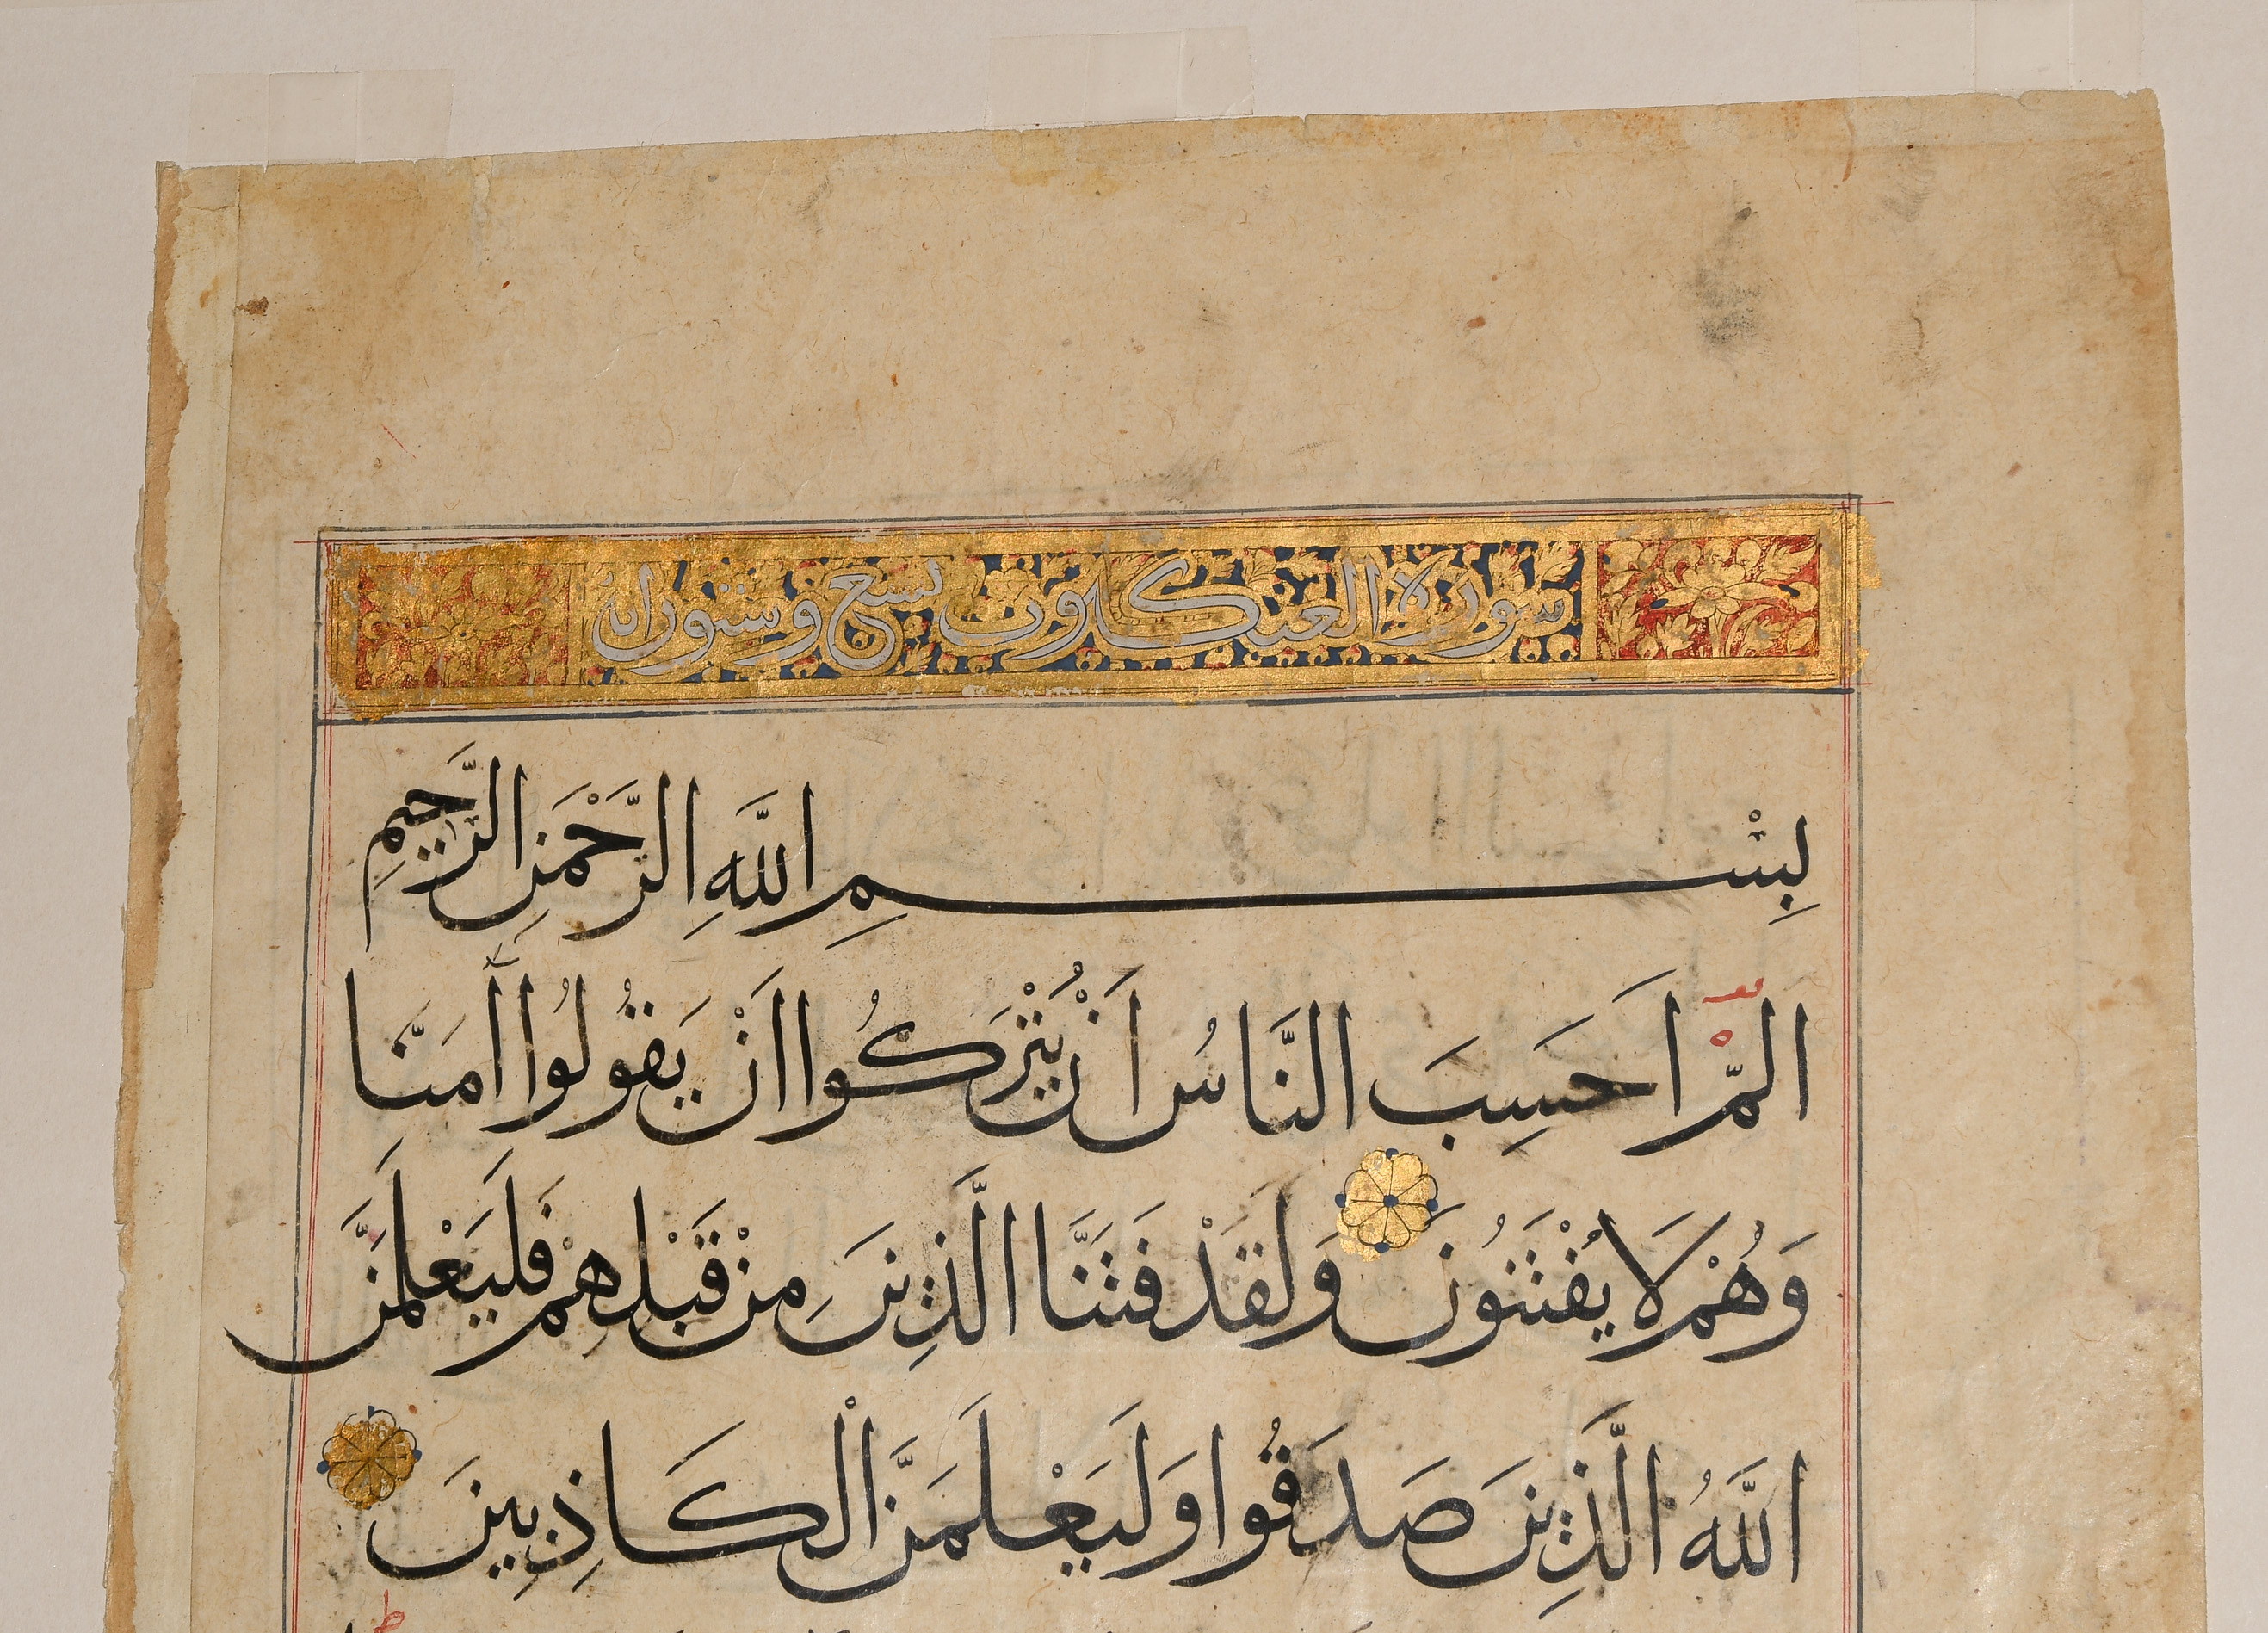 سورة العنكبوت تسع وستون اية
بِسْمِ اللَّهِ الرَّحْمَنِ الرَّحِيمِ
الم اَحَسِبَ النَّاسُ اَنْ يُتْرَكُوا اَنْ يَقُولُوا اٰمَنَّا
وَهُمْ لَا يُفْتَنُونَ وَلَقَدْ فَتَنَّا الَّذِينَ مِنْ قَبْلِهِمْ فَلَيَعْلَمَنَّ
اللَّهُ الَّذِينَ صَدَقُوا وَلَيَعْلَمَنَّ الْكَاذِبِينَ
ط